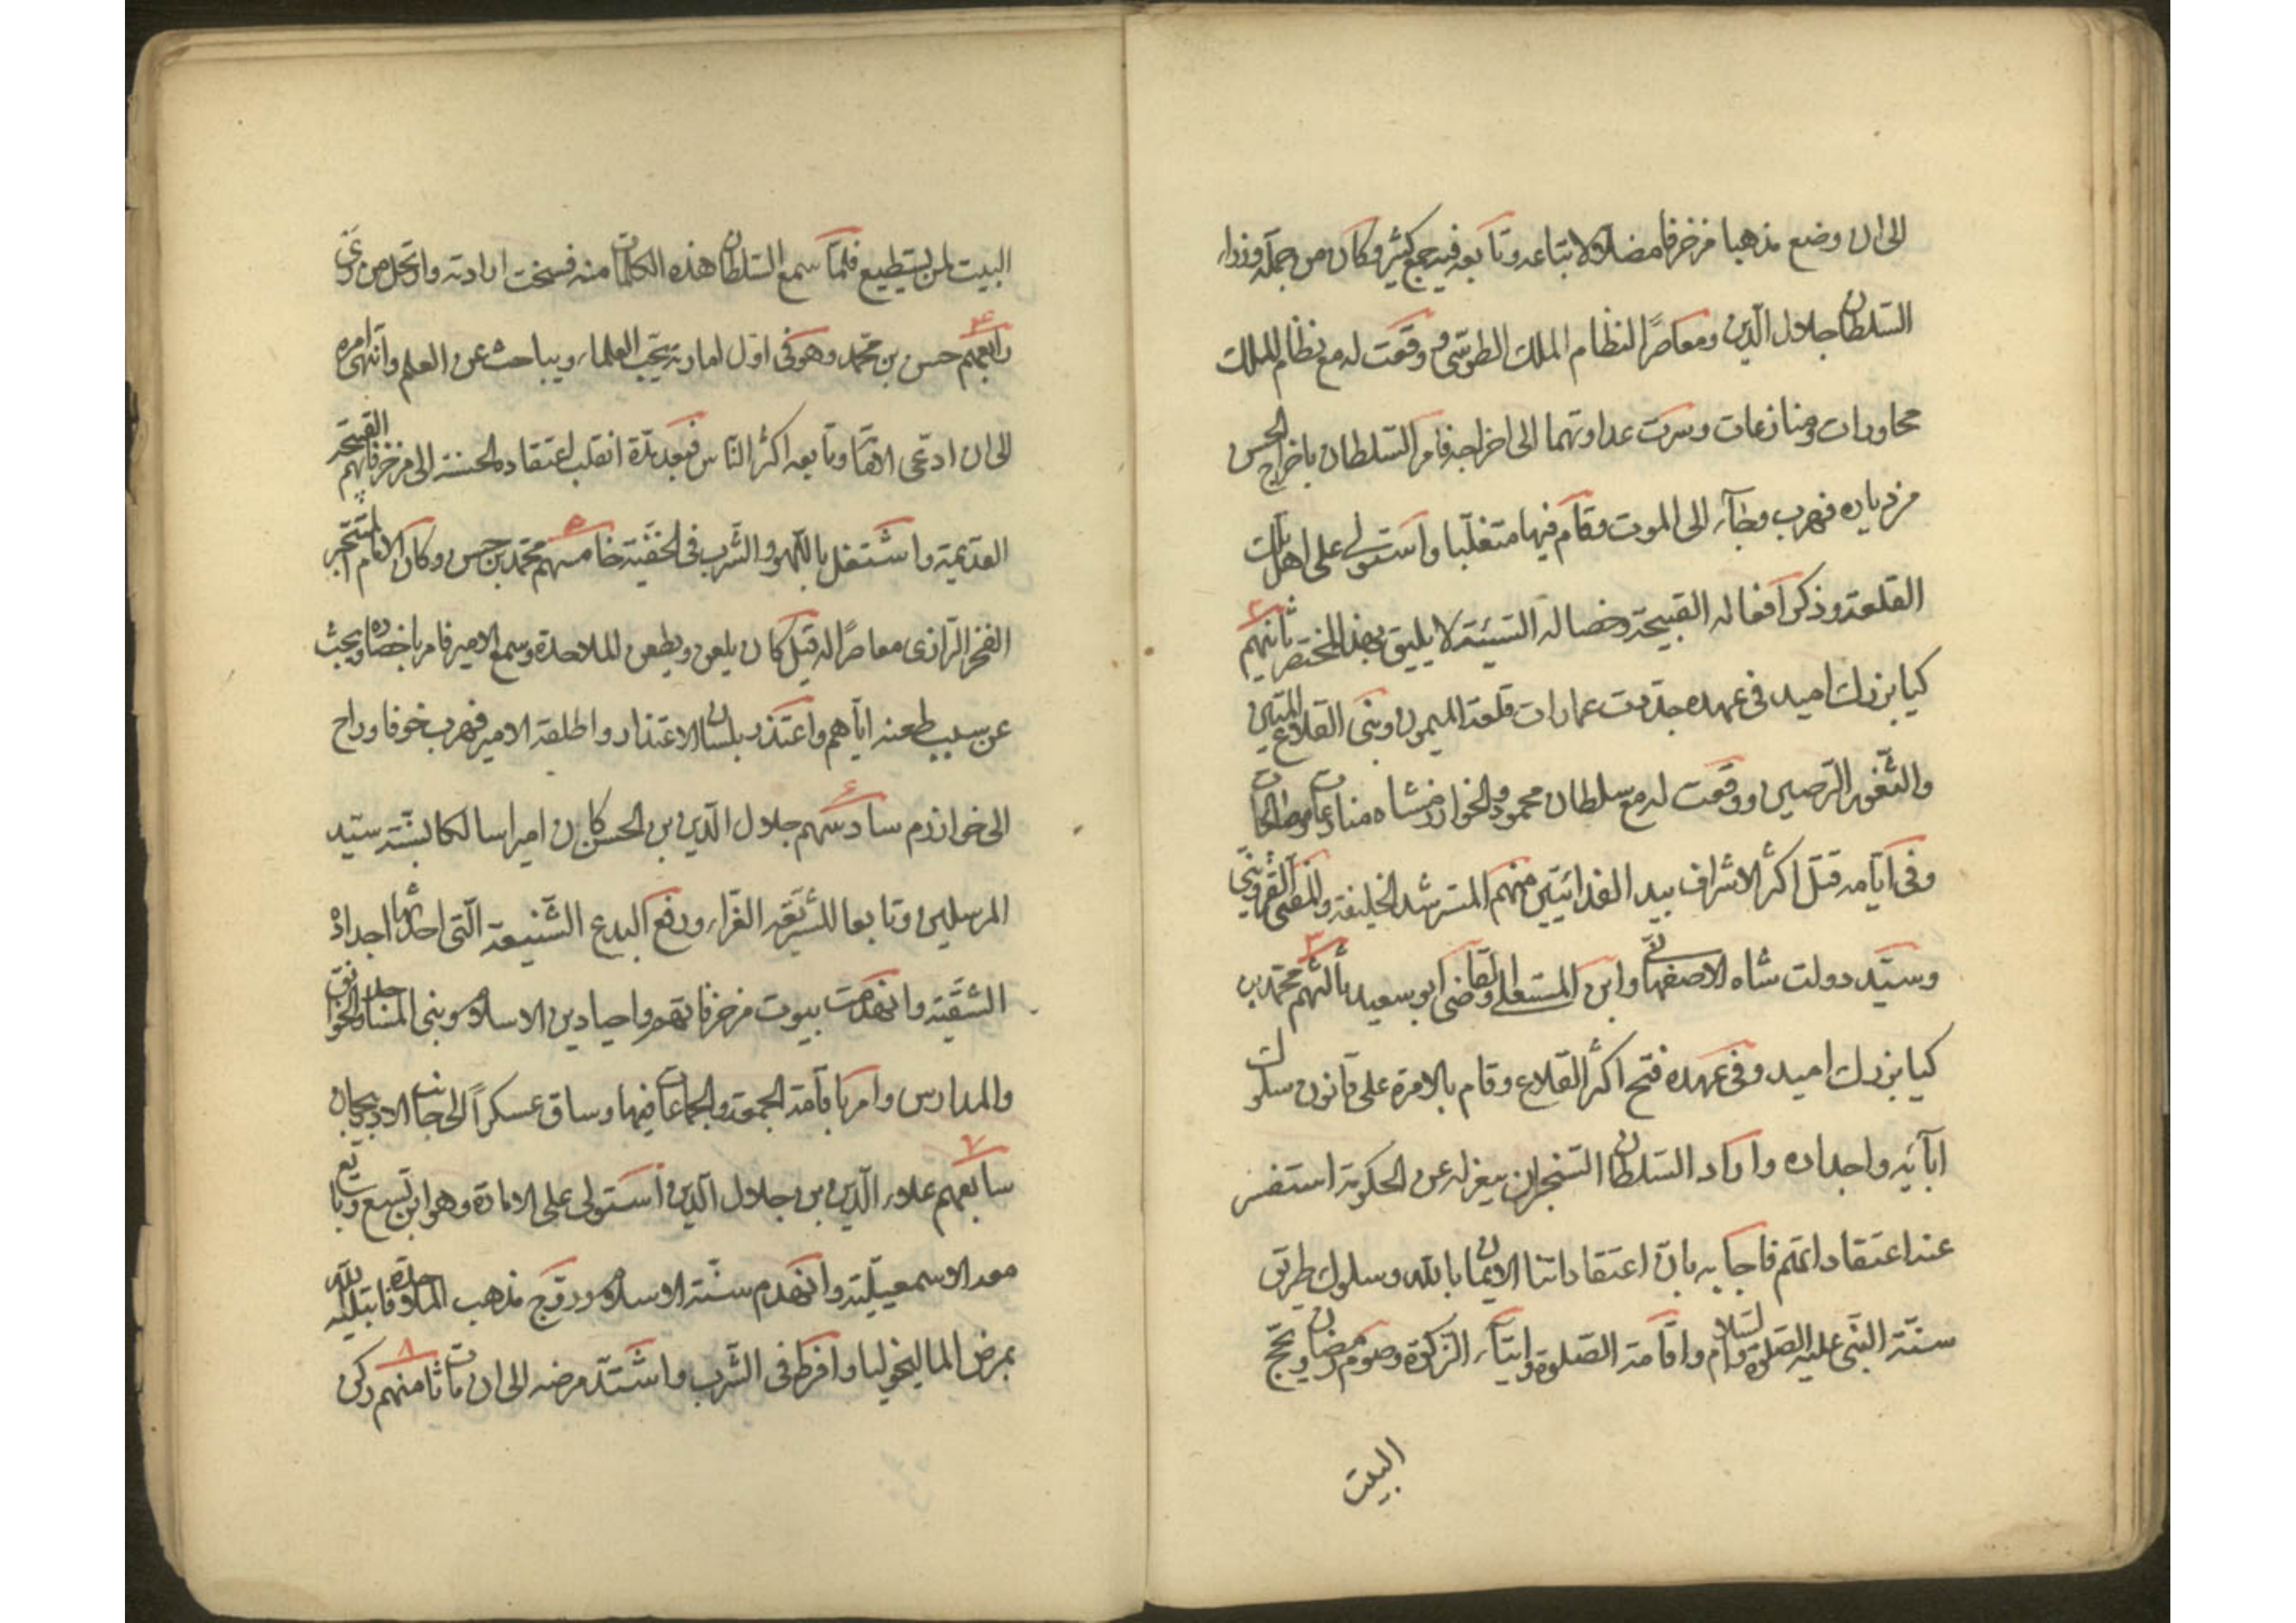 الى ان وضع مذهبا مزخرفا مضلا لاتباعه وتابعه فيه جمع كثير وكان من جملة وزراء
السلطان جلال الدين ومعاصرًا لنظام الملك الطوسى ووقعت له مع نظام الملك
محاورات ومنازعات وسرت عداوتهما الى اخراجه فامر السلطان باخراج الحسن
من دياره فهرب وجاء الى الموت وقام فيها متغلبا واستولى على اهل تلك
القلعة وذكر افعاله القبيحة وخصاله السيئة لا يليق بهذا المختصر ثانيهم ٢
كيا بزرك اميد فى عهده جددت عمارات قلعة الميمون وبنى القلاع المتين
والثغور الرصين ووقعت له مع سلطان محمود والخوارزمشاه منازعات ومصالحات
وفى ايامه قتل اكثر الاشراف بيد الفدائيين منهم المسترشد الخليفة والمفتى القزوينى
وسيد دولت شاه الاصفهانى وابن المستعلى والقاضى ابو سعيد ثالثهم ٣ محمد بن
كيا بزرك اميد وفى عهده فتح اكثر القلاع وقام بالامرة على قانون سلوك
ابائه واجداده واراد السلطان السنجر ان يعزله عن الحكومة استفسر
عنه اعتقاداتهم فاجابه بان اعتقاداتنا الايمان بالله وسلوك طريق
سنة النبى عليه الصلوة والسلام واقامة الصلوة وايتاء الزكوة وصوم رمضان وحج
البيت
البيت لمن يستطيع فلما سمع السلطان هذه الكلمات منه فسخت ارادته وارتحل من
رابعهم ٤ حسن بن محمد وهو فى اول امارته يحب العلماء ويباحث عن العلم وانتهى امره
الى ان ادعى الامامة وتابعه اكثر الناس فبعد مدة انقلب اعتقاده الحسنة الى مزخرفاتهم القبيحة
القديمة واشتغل باللهو والشرب فى الخفية خامسهم ٥ محمد بن حسن وكان الامام المتبحر
الفخر الرازى معاصرًا له قيل كان يلعن ويطعن الملاحدة وسمع الامير فامر باحضاره ويبحث
عن سبب طعنه اياهم واعتذر بلسان الاعتذار واطلقه الامير فهرب خوفا وراح
الى خوارزم سادسهم ٦ جلال الدين بن الحسن كان اميرا سالكا بسنة سيد
المرسلين وتابعا للشريعة الغراء ورفع البدع الشنيعة التى احدثها اجداده
الشقية وانهدمت بيوت مزخرفاتهم واحيا دين الاسلام وبنى المساجد والخوانق
والمدارس وامر باقامة الجمعة والجماعات فيها وساق عسكراً الى جانب الاذربيجان
سابعهم ٧ علاء الدين بن جلال الدين استولى على الامارة وهو ابن تسع وبايع
معه الاسمعيلية وانهدم سنة الاسلام وروج مذهب الملاحدة فابتليه الله
بمرض الماليخوليا وافرط فى الشرب واشتد مرضه الى ان مات ثامنهم ٨ ركن